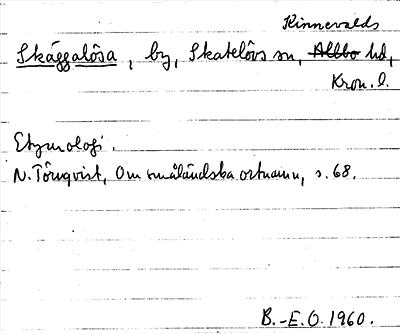 Kinnevalds
Skäggalösa, by, Skatelövs sn, Allbo hd,
Kron. l.
Etymologi.
N. Törnqvist, Om småländska ortnamn, s. 68.
B.-E.O. 1960.